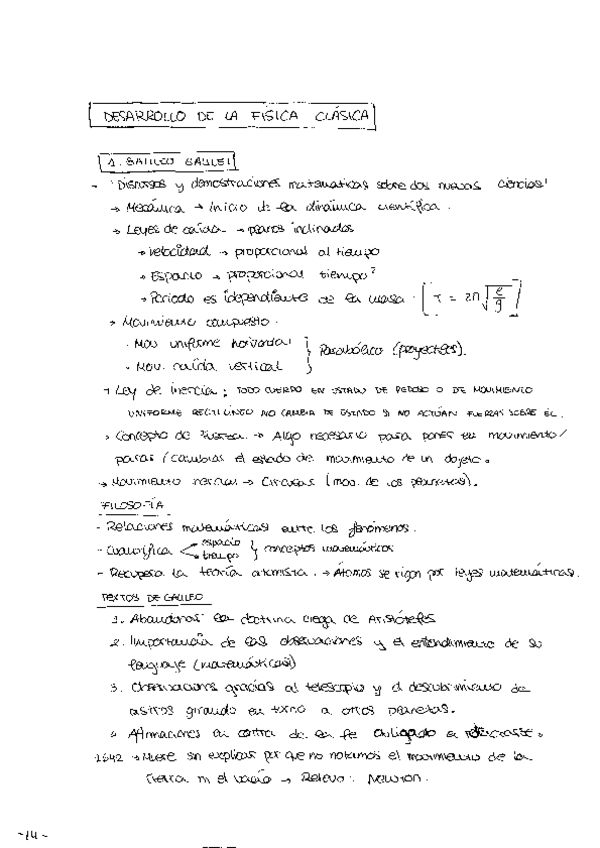 DESARROLLO DE LA FÍSICA CLÁSICA
1. GALILEO GALILEI
- 'Discursos y demostraciones matemáticas sobre dos nuevas ciencias'
→ Mecánica → Inicio de la dinámica científica.
→ Leyes de caída → planos inclinados
→ Velocidad → proporcional al tiempo
→ Espacio → proporcional tiempo²
→ Periodo es independiente de la masa. [T = 2π√(l/g)]
→ Movimiento compuesto.
· Mov uniforme horizontal
· Mov. caída vertical } Parabólico (proyectiles).
→ Ley de inercia: TODO CUERPO EN ESTADO DE REPOSO O DE MOVIMIENTO
UNIFORME RECTILÍNEO NO CAMBIA DE ESTADO SI NO ACTÚAN FUERZAS SOBRE ÉL.
→ Concepto de Fuerza → Algo necesario para poner en movimiento/
parar/cambiar el estado de movimiento de un objeto.
→ Movimiento inercial → Circular (mov. de los planetas).
FILOSOFÍA
- Relaciones matemáticas entre los fenómenos.
- Cuantifica < espacio tiempo } conceptos matemáticos
- Recupera la teoría atomista. → Átomos se rigen por leyes matemáticas.
TEXTOS DE GALILEO
1. Abandonar la doctrina ciega de Aristóteles
2. Importancia de las observaciones y el entendimiento de su
lenguaje (matemáticas)
3. Observaciones gracias al telescopio y el descubrimiento de
astros girando en torno a otros planetas.
Afirmaciones en contra de la fe obligado a retractarse.
1642 → Muere sin explicar por que no notamos el movimiento de la
tierra ni el vacío → Relevo: Newton.
-14-